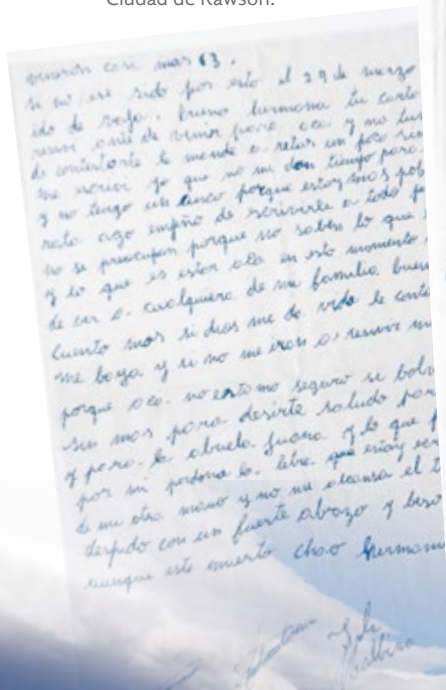 Ciudad de Rawson.
vinieron casi mas 63.
si no ese sido por esto el 29 de marzo
ido de baja. bueno hermana tu carta
resivi antes de venir para aca y no tu
de contestarte te mande a retar un poco
me escrivi yo que no me dan tiempo para
y no tengo un cinco porque estoy mos pob
rato ago empeño de escrivirle a todo
no se preocupen porque no saben lo que
y lo que es estar ala en esto momento
de ver a cualquiera de mi familia buen
cuento mas si dios me da vida le conta
me baya y si no me eran a resivir
porque aca no estamo seguro si bolv
sin mas para desirte saludo par
y para la abuela juana y lo que
por mi perdona la letra que estoy es
de mi otra mano y no me alcansa el t
despido con un fuerte abrazo y beso
aunque este muerto chao hermana